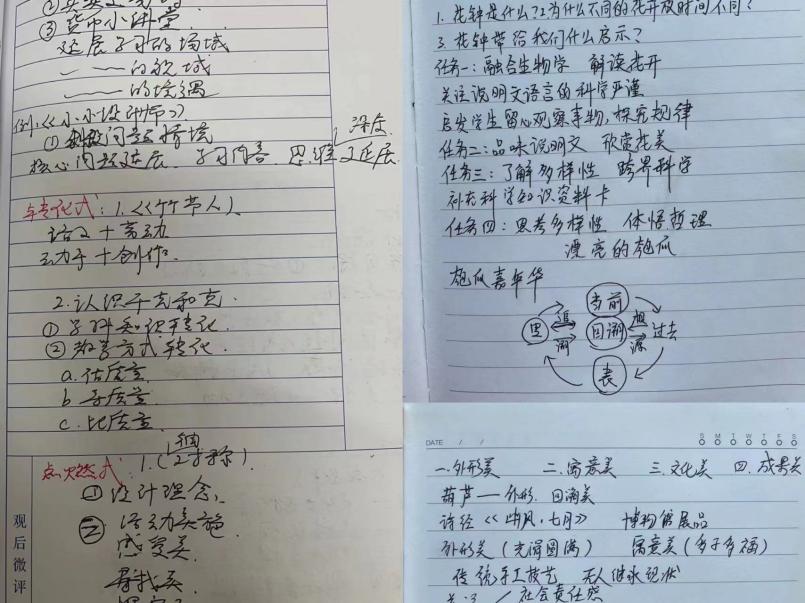 ③货币小讲堂
延展学习的场域
———的领域
———的境遇
例:《小小设计师》
①问题情境 深度
核心问题延展 学习内容 思维 延展
1.《竹节人》
语文十劳动
动手十创作.
2.认识千克和克.
①学科知识转化
②教育方式转化
a.估质量
b
c.比质量
点燃式:1.(对称).
①设计理念:
②活动实施
感受美
寻找美
观后微评
1.花钟是什么?2为什么不同的花开放时间不同?
3.花钟带给我们什么启示?
任务一:融合生物学 解读花开
关注说明文语言的科学严谨
启发学生留心观察事物,探究规律
任务二:品味说明文 欣赏花美
任务三:了解多样性 跨界科学
补充科学知识资料卡
任务四:思考多样性 体悟哲理
漂亮的匏瓜
匏瓜嘉年华
当前
思 追溯 回溯 溯源 过去
表
DATE / / S M T W T F S
一.外形美 二.寓意美 三.文化美 四.成果美
葫芦——外形. 圆满美
诗经《豳风·七月》 博物馆展品
外形美(光滑圆满) 寓意美(多子多福)
传统手工技艺 无人继承现状
社会责任感